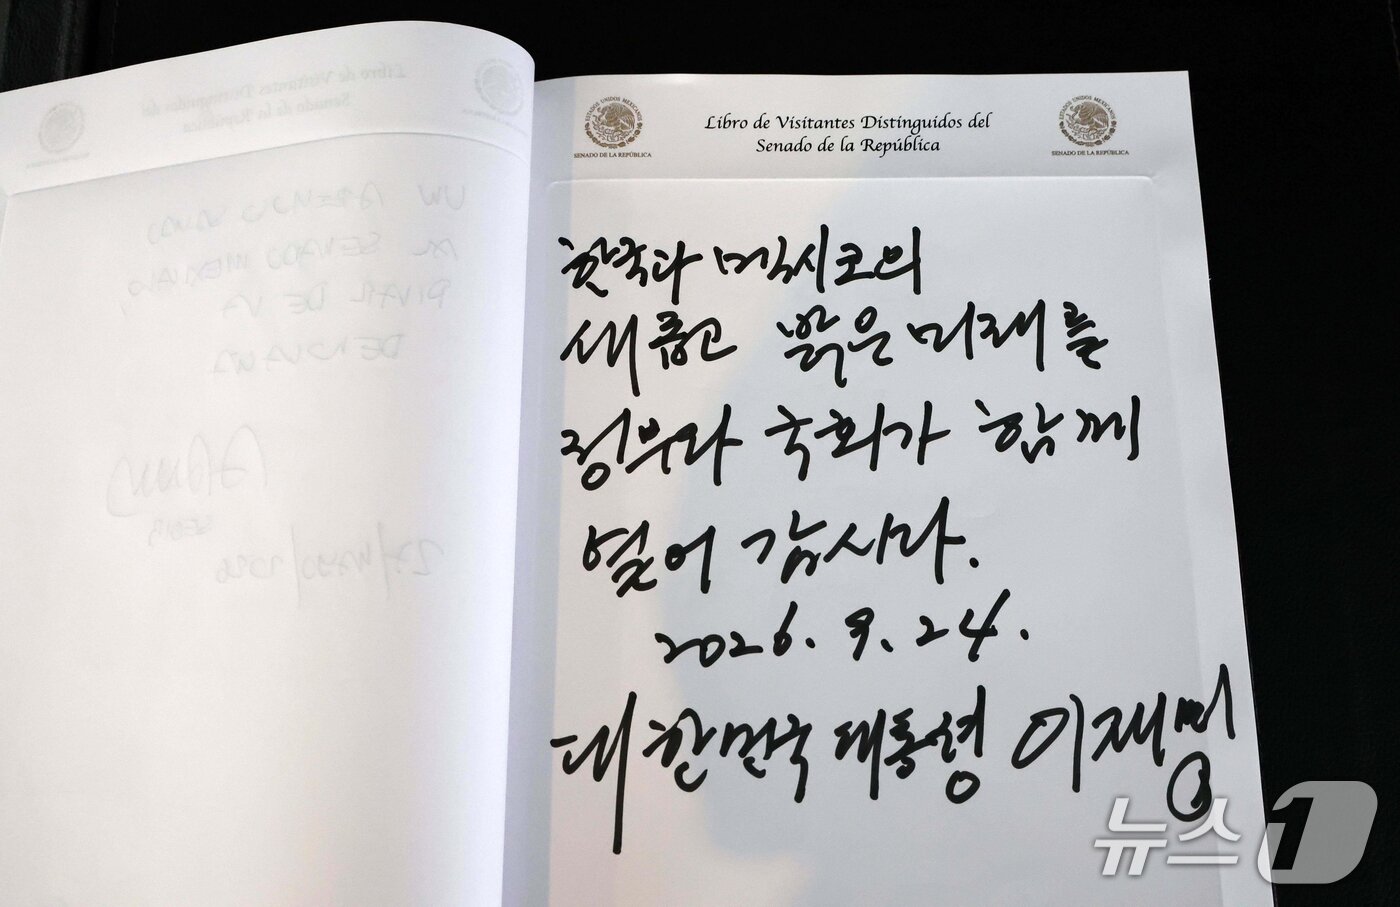 ESTADOS UNIDOS MEXICANOS
SENADO DE LA REPÚBLICA
Libro de Visitantes Distinguidos del
Senado de la República
ESTADOS UNIDOS MEXICANOS
SENADO DE LA REPÚBLICA
한국과 멕시코의
새롭고 밝은 미래를
정부와 국회가 함께
열어 갑시다.
2026. 9. 24.
대한민국 대통령 이재명
뉴스1